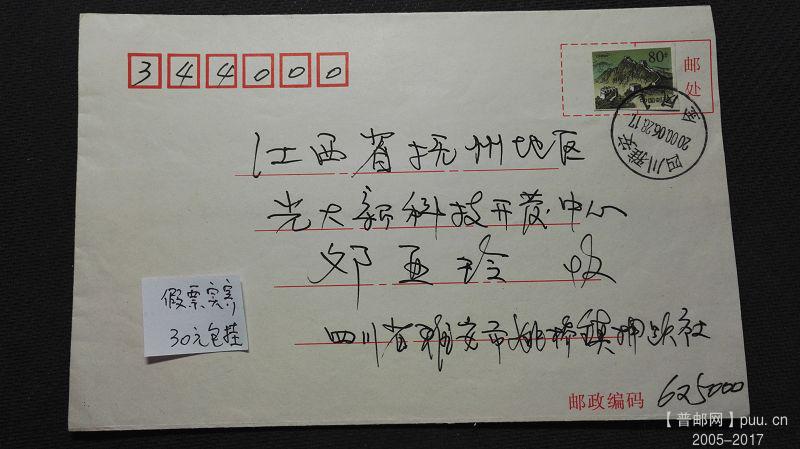 344000
80分
邮
处
四川雅安
2000.06.28.17
江西省抚州地区
光大新科技开发中心
邓亚玲 收
假票实寄
30元包挂
四川省雅安市姚桥镇
邮政编码 625000
【普邮网】puu.cn
2005-2017